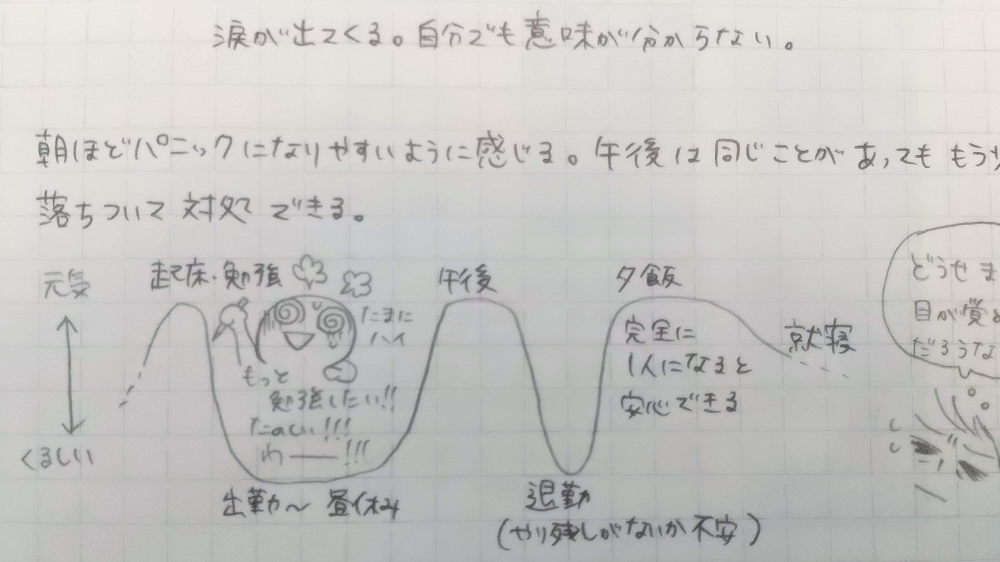 涙が出てくる。自分でも意味が分からない。
朝ほどパニックになりやすいように感じる。午後は同じことがあっても もう少
落ちついて対処できる。
元気
くるしい
起床・勉強
たまに
ハイ
もっと
勉強したい!!
たのしい!!!
わ――!!!
出勤〜 昼休み
午後
退勤
(やり残しがないか不安)
夕飯
完全に
1人になると
安心できる
就寝
どうせま
目が覚め
だろうな